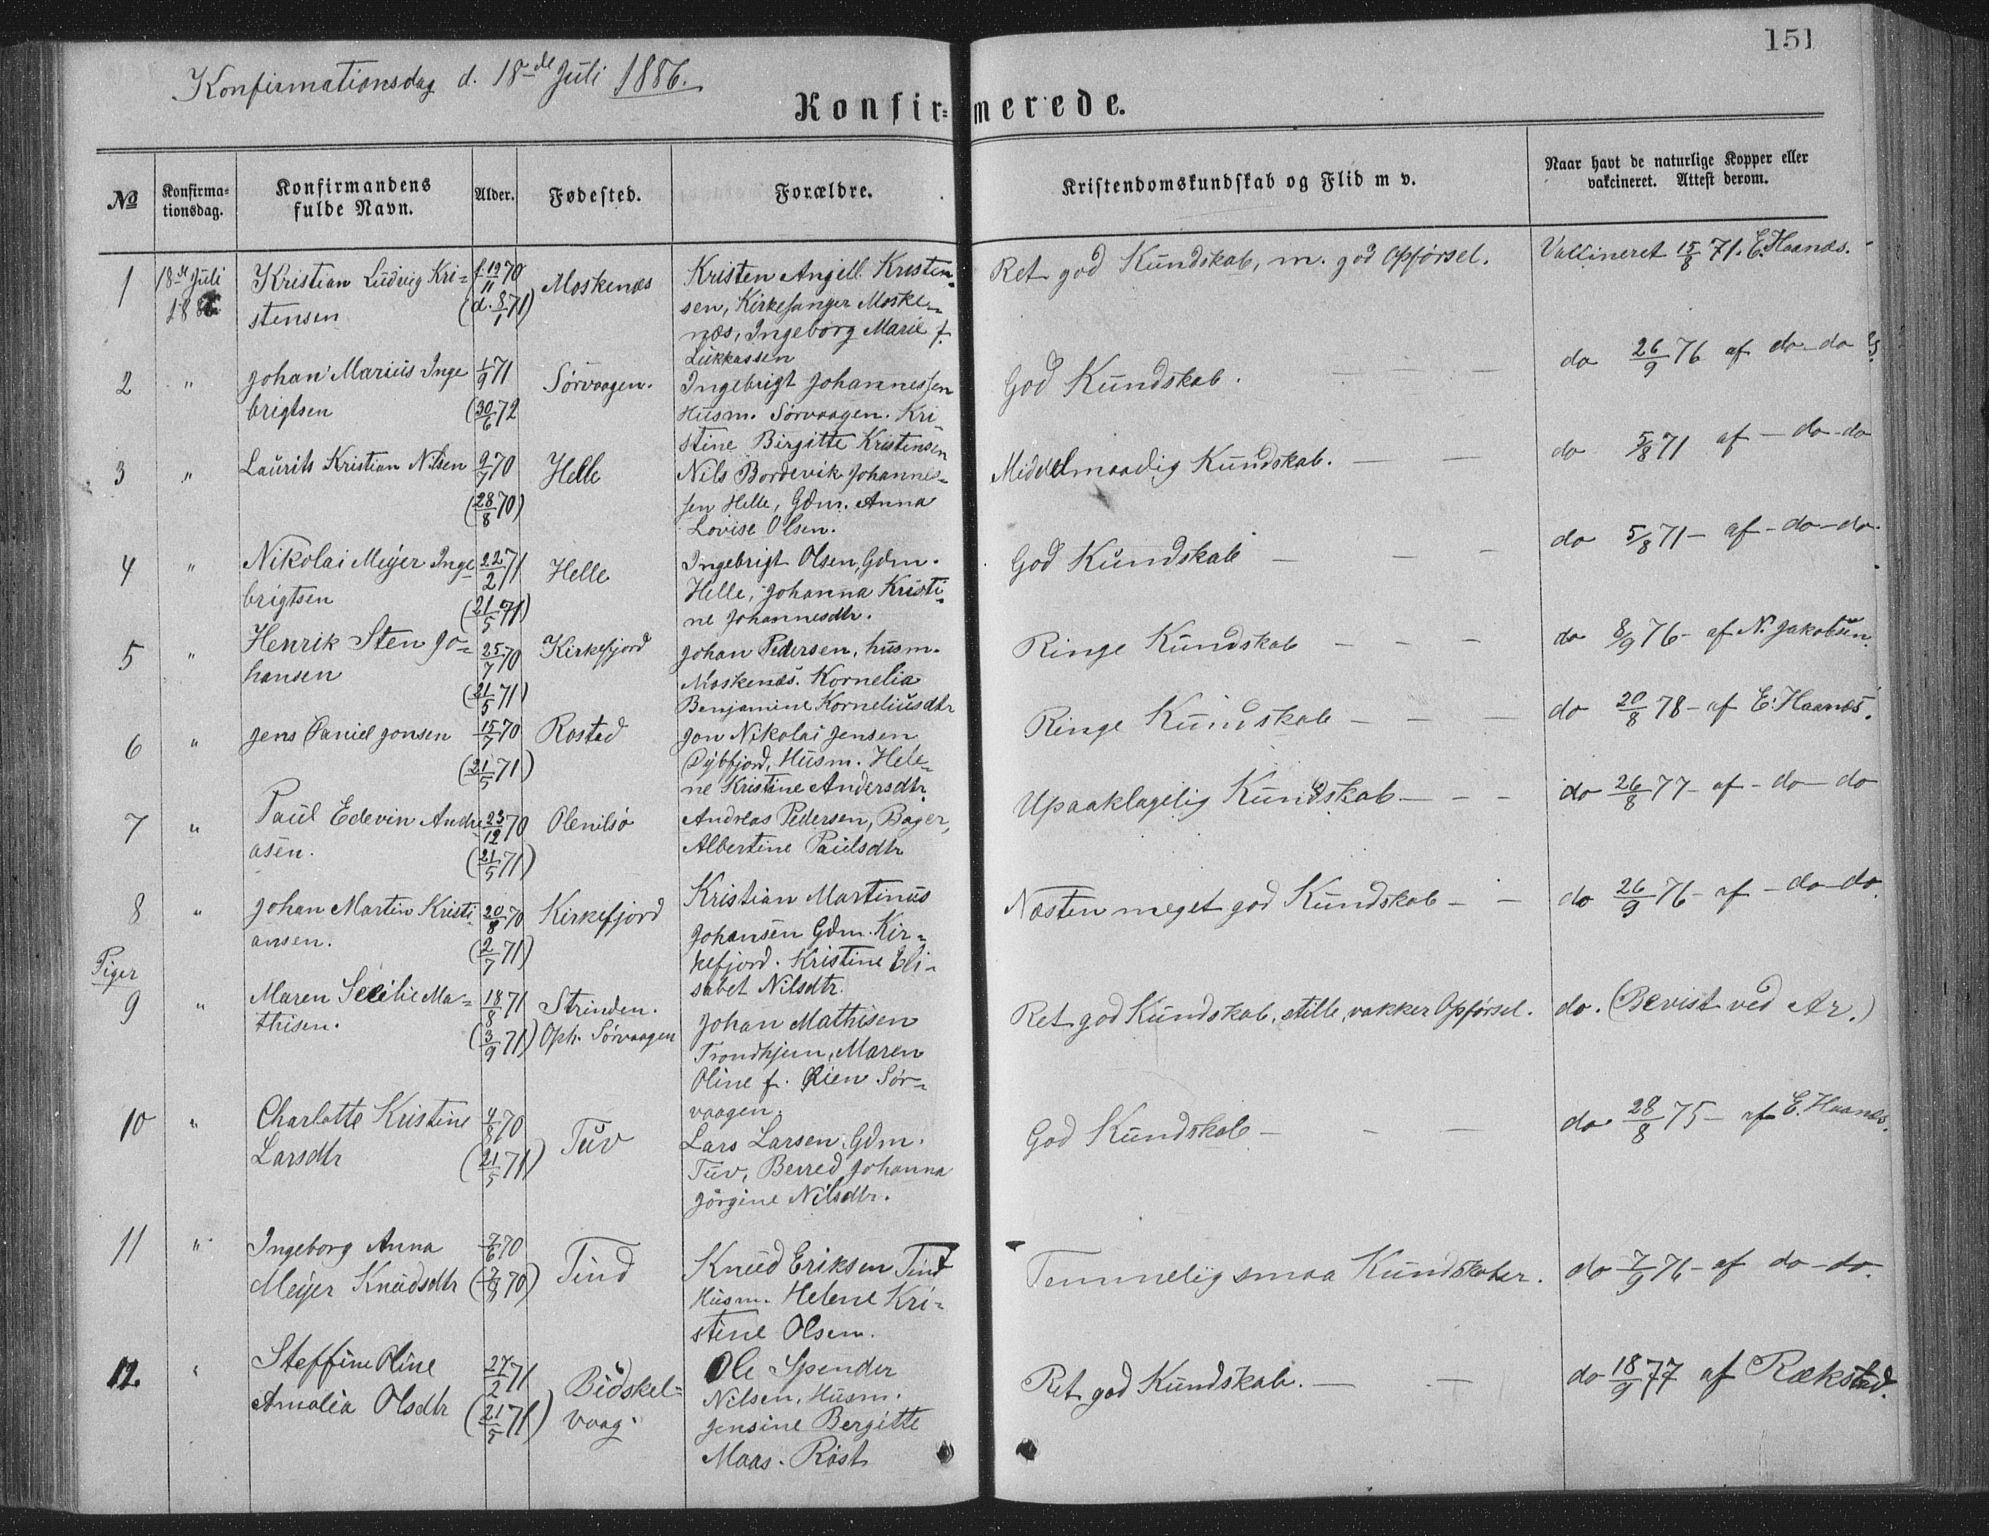 151
Konfirmationsdag d. 18de Juli 1886.
Konfir=merede.
No
Konfirma=
tionsdag.
Konfirmandens
fulde Navn.
Alder.
Fødested.
Forældre.
Kristendomskundskab og Flid m v.
Naar havt de naturlige Kopper eller
vakcineret. Attest derom.
1 18de Juli Kristian Ludvig Kri= f. 19/11 70 Moskenæs Kristen Angell Kristen= Ret god Kundskab, m. god Opførsel. Vaccineret 15/8 71. E. Haanæs.
1886 stensen (d. 8/1 71) sen, Kirkesanger Moske=
næs, Ingeborg Marie f.
Lukkassen
2 " Johan Marius Inge 1/9 71 Sørvaagen. Ingebrigt Johannessen God Kundskab. — — do 26/9 76 af do-do
brigtsen (30/6 72 Husm. Sørvaagen. Kri
stine Birgitte Kristensen
3 " Laurits Kristian Nilsen 9/7 70 Helle Nils Bordevik Johannes= Middelmaadig Kundskab. — — do 5/8 71 af — do-do
(28/8 70) sen Helle, Gdm. Anna
Lovise Olsen.
4 " Nikolai Meyer Inge 22/2 71 Helle Ingebrigt Olsen, Gdm. God Kundskab — — — do 5/8 71 — af — do-do.
brigtsen (21/5 71) Helle, Johanna Kristi=
ne Johannesdtr.
5 " Henrik Sten Jo= 25/7 70 Kirkefjord Johan Pedersen, husm. Ringe Kundskab — — — do 8/9 76 — af N. Jakobsen.
hansen (21/5 71) Moskenæs. Kornelia
Benjamine Korneliusdtr
6 " Jens Daniel Jonsen 15/7 70 Rostad Jon Nikolai Jensen Ringe Kundskab — — — do 20/8 78 — af E. Haanæs.
(21/5 71) Dybfjord, Husm. Hele=
ne Kristine Andersdtr.
7 " Paul Edevin Andre 23/12 70 Olenilsø Andreas Pedersen, Bager, Upaaklagelig Kundskab — — — do 26/8 77 — af — do — do
asen. (21/5 71) Albertine Paulsdtr
8 " Johan Martin Kristi 20/8 70 Kirkefjord Kristian Martinus Næsten meget god Kundskab — — do 26/9 76 — af — do-do.
ansen. (2/7 71) Johansen Gdm. Kir=
kefjord. Kristine Eli=
sabet Nilsdtr.
Piger
9 " Maren Secilie Ma= 18/8 71 Strinden. Johan Mathisen Ret god Kundskab, stille, vakker Opførsel. do. (Bevist ved Ar.)
thisen. (3/9 71) Oph. Sørvaagen Trondhjem, Maren
Oline f. Rien Sør=
vaagen.
10 " Charlotte Kristine 4/8 70 Tuv Lars Larsen Gdm. God Kundskab — — — do 28/8 75 — af E. Haanæs.
Larsdtr (21/5 71) Tuv, Berred Johanna
Jørgine Nilsdtr.
11 " Ingeborg Anna 7/6 70 Tind Knud Eriksen Tind Temmelig smaa Kundskaber. do 7/9 76 — af do-do.
Meyer Knudsdtr (7/8 70) Husm. Helene Kri=
stine Olsen.
12. " Steffine Oline 27/2 71 Bidskel= Ole Spender Ret god Kundskab. — — do 18/9 77 af Rækstad.
Amalia Olsdtr (21/5 71) vaag. Nilsen, Husm.
Jensine Bergitte
Maas. Røst